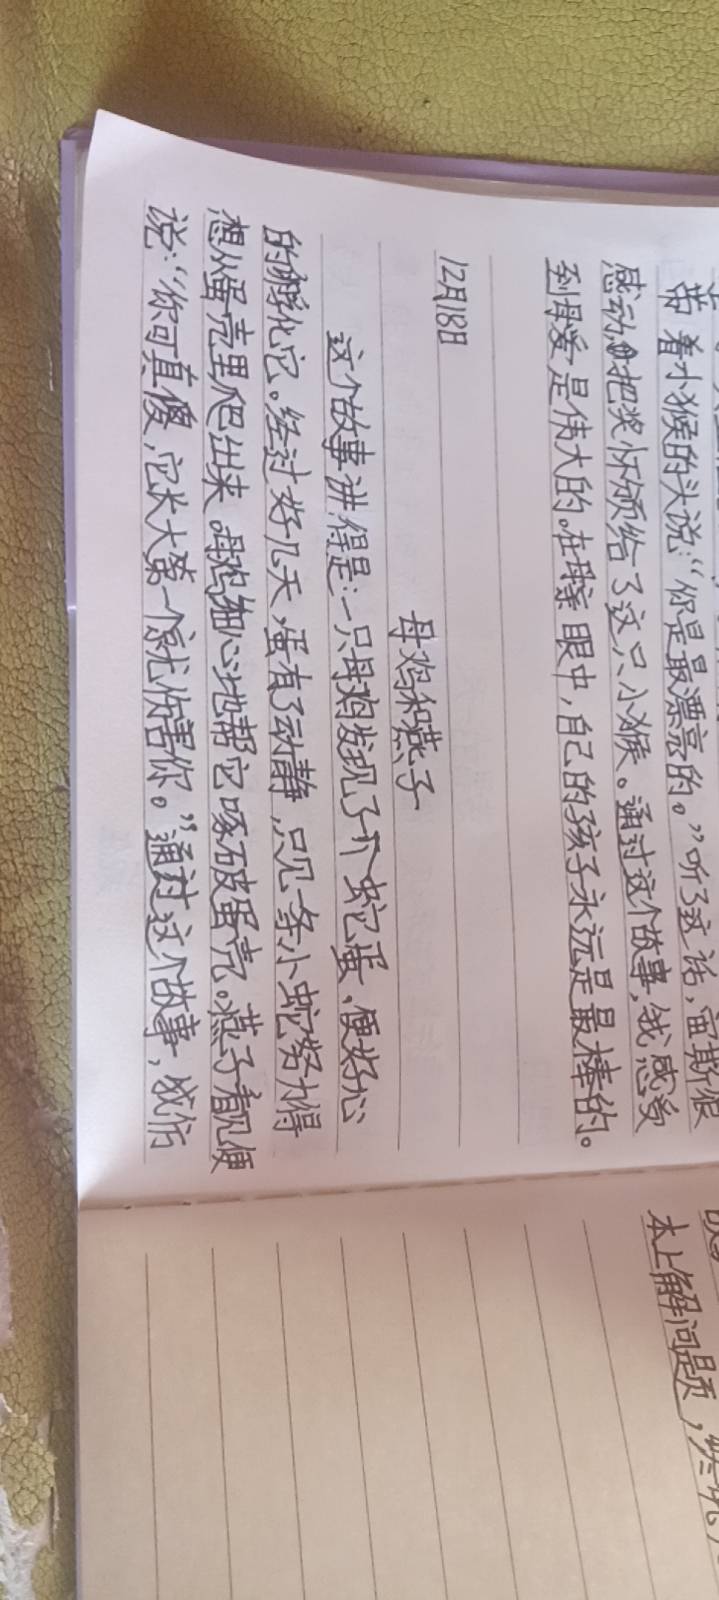 带着小猴的头说：“你是最漂亮的。”听了这话，宙斯很
感动，把奖杯颁给了这只小猴。通过这个故事，我感受
到母爱是伟大的。在母亲眼中，自己的孩子永远是最棒的。
12月18日
母鸡和燕子
这个故事讲得是：一只母鸡发现了一个蛇蛋，便好心
的孵化它。经过好几天，蛋有了动静，只见一条小蛇努力得
想从蛋壳里爬出来。母鸡细心地帮它啄破蛋壳。燕子看见便
说：“你可真傻，它长大第一个就伤害你。”通过这个故事，我们
本上解问题，